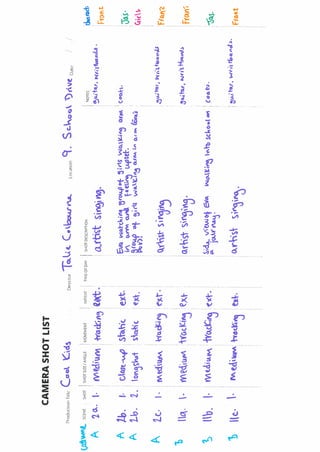 CAMERA SHOT LIST
Production Title Cool Kids Director Talie Colbourne Location 9. School Drive Date / /
costume SCENE SHOT SHOT SIZE / ANGLE MOVEMENT INT/EXT TIME OF DAY SHOT DESCRIPTION NOTES character
A 2a. 1. medium tracking ext. artist singing. guitar, wristbands. Franz
A 2b. 1. close-up static ext. Eva watching group of girls walking arm in arm and feeling upset. coats. Jas.
A 2b. 2. longshot static ext. group of girls walking arm in arm Girls
A 2c. 1. medium tracking ext artist singing guitar, wristbands Franz
B 11a. 1. medium tracking ext artist singing. guitar, wristbands Franz
B 11b. 1. medium tracking ext. Side view of Eva walking into school on a journey. coats. Jas
B 11c. 1. medium tracking ext. artist singing. guitar, wristbands. Franz